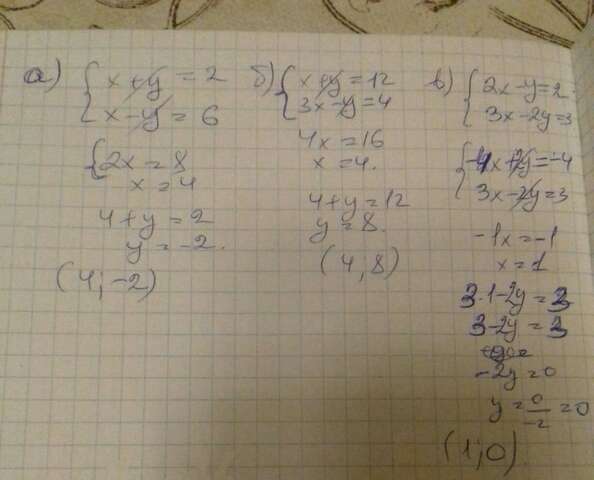 а) { x + y = 2
x - y = 6
{ 2x = 8
x = 4
4 + y = 2
y = -2.
(4; -2)
б) { x + y = 12
3x - y = 4
4x = 16
x = 4.
4 + y = 12
y = 8.
(4; 8)
в) { 2x - y = 2
3x - 2y = 3
{ -4x + 2y = -4
3x - 2y = 3
-1x = -1
x = 1
3·1 - 2y = 3
3 - 2y = 3
-2y = 0
y = 0/-2 = 0
(1; 0)